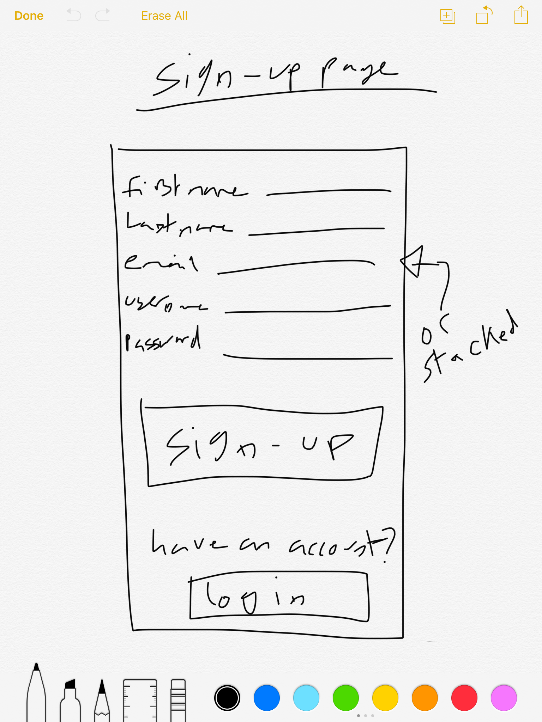 Done
Erase All
Sign-up page
first name
Last name
email
username
password
or
stacked
Sign-up
have an account?
login